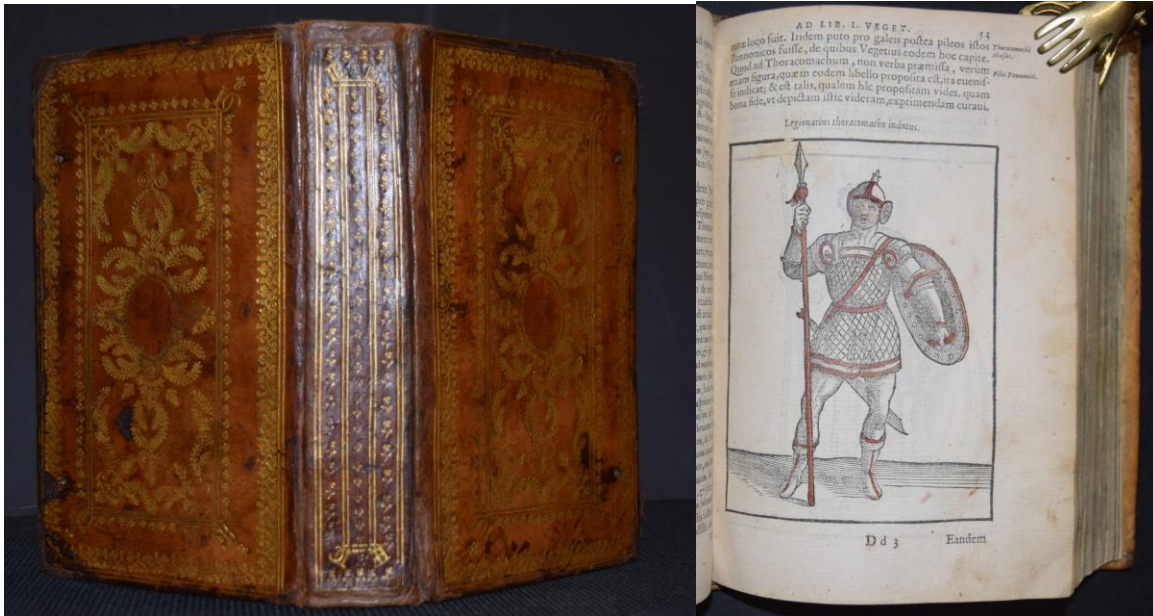 AD LIB. I. VEGET. 53
nutæ loco fuit. Itidem puto pro galeis postea pileos istos
Pannonicos fuisse, de quibus Vegetius eodem hoc capite.
Quod ad Thoracomachum, non verba præmissa, verùm
etiam figura, quæ in eodem libello proposita est, ita euenis-
se indicat; & est talis, qualem hîc propositam vides, quam
bona fide, vt depictam istic videram, exprimendam curaui.
Thoracomachi
Pilei Pannonici.
Legionarius thoracomacho indutus.
Dd 3 Eandem